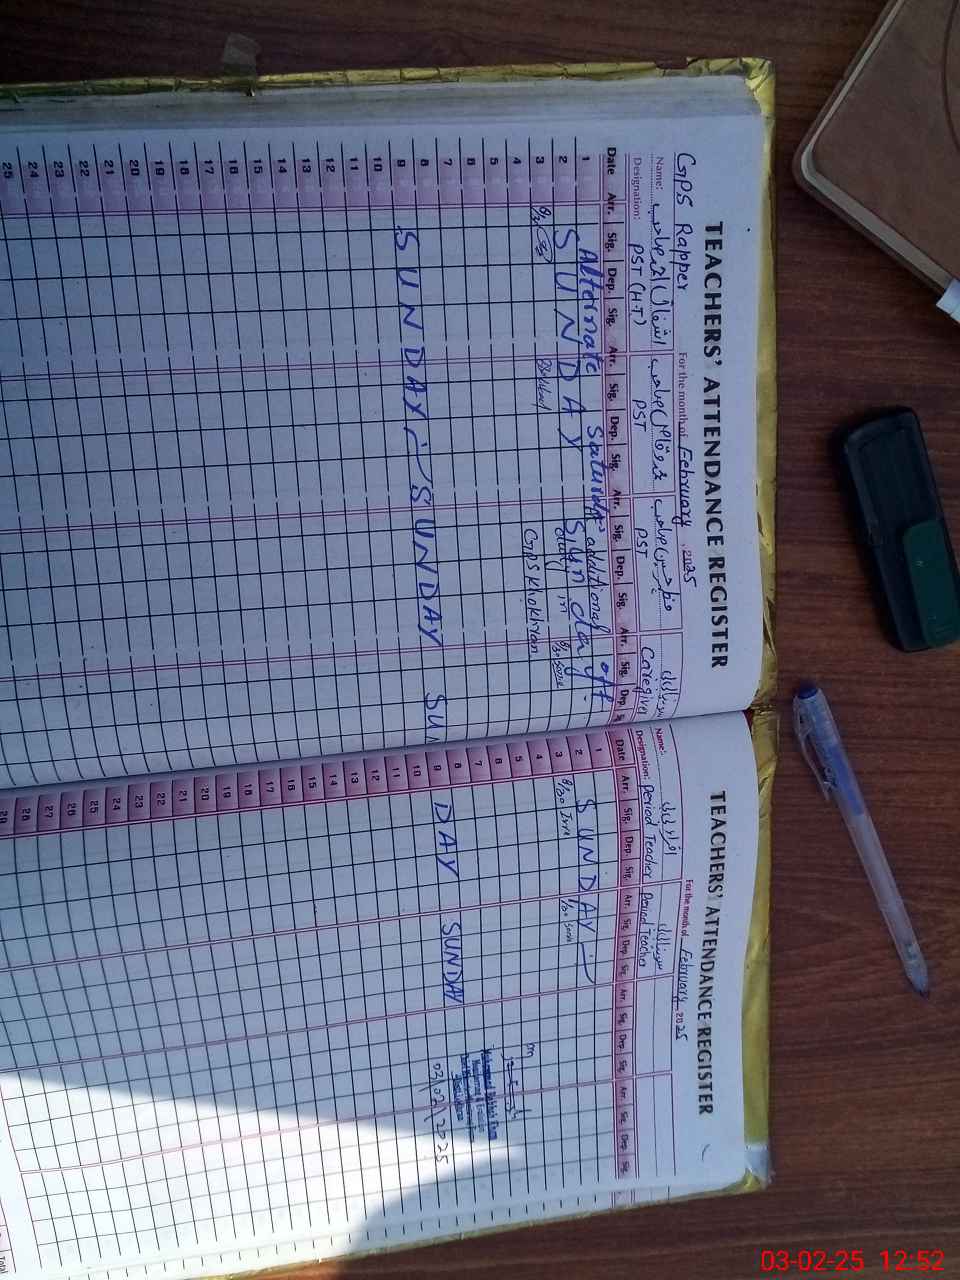 TEACHERS' ATTENDANCE REGISTER
GPS Rapper For the month of February 2025
Name: اشفاق احمد صاحب
Designation: PST (H.T.) PST PST Caregiver
Date Arr. Sig. Dep. Sig. Arr. Sig. Dep. Sig. Arr. Sig. Dep. Sig. Arr. Sig. Dep. Si
1 Alternate Saturday additional off.
2 SUNDAY Sunday
3 duty in
GPS Khokhran
4
5
6
7
8
9 SUNDAY SUNDAY SUN
10
11
12
13
14
15
16
17
18
19
20
21
22
23
24
25
TEACHERS' ATTENDANCE REGISTER
For the month of February 2025
Name:
Designation: Period Teacher Period Teacher
Date Arr. Sig. Dep. Sig. Arr. Sig. Dep. Sig. Arr. Sig. Dep. Sig. Arr. Sig. Dep. Sig.
1
2 SUNDAY
3 8/30
4
5
6
7
8
9 DAY SUNDAY
10
11
12
13
14
15
16
17
18
19
20
21
22
23
24
25
26
27
28
29
03/02/2025
Total
03-02-25 12:52